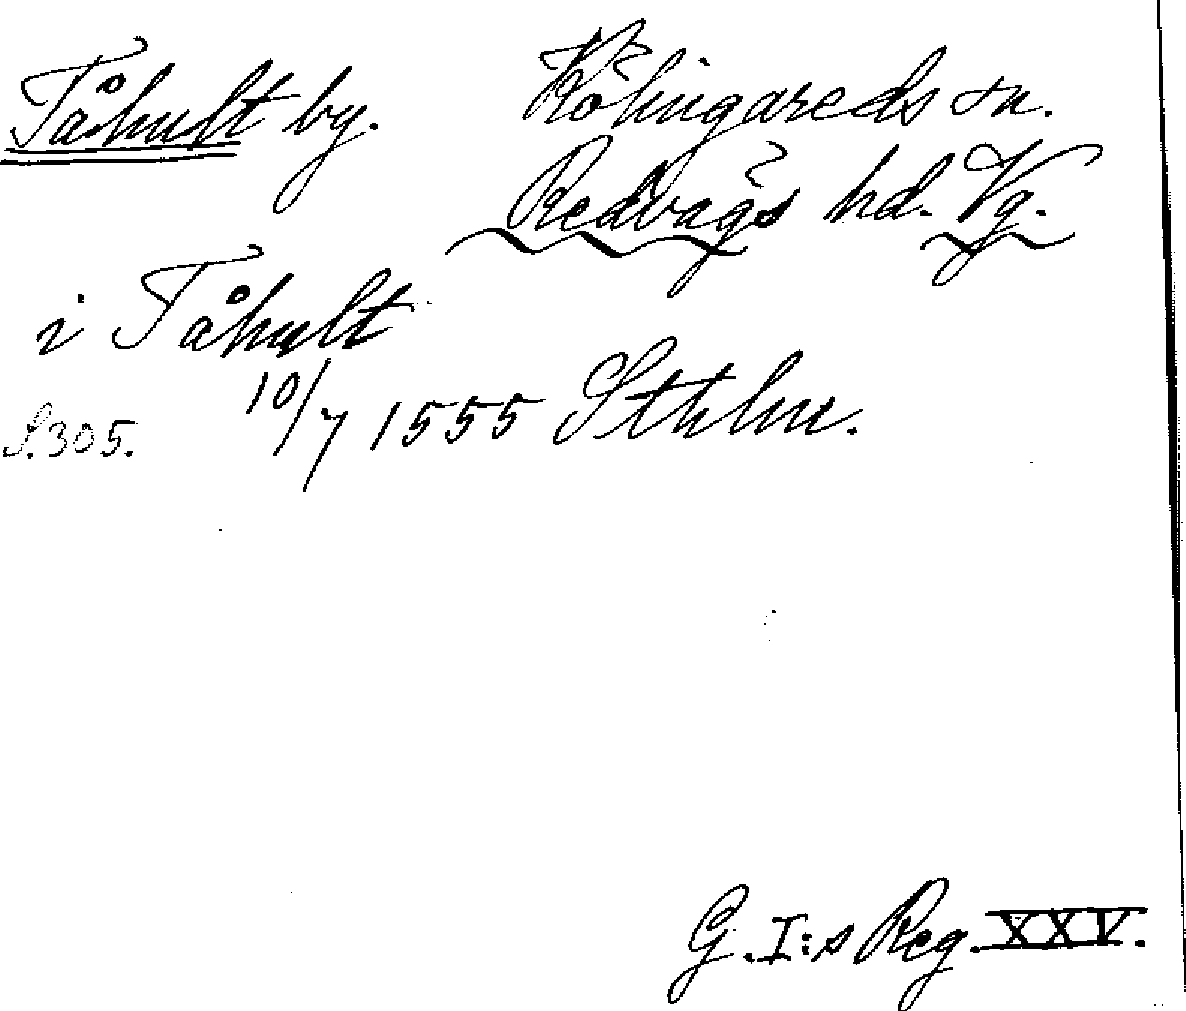 Tåhult by. Kölingareds sn.
Redvägs hd. Vg.
i Tåhult
S. 305. 10/7 1555 Sthlm.
G. I:s Reg. XXV.